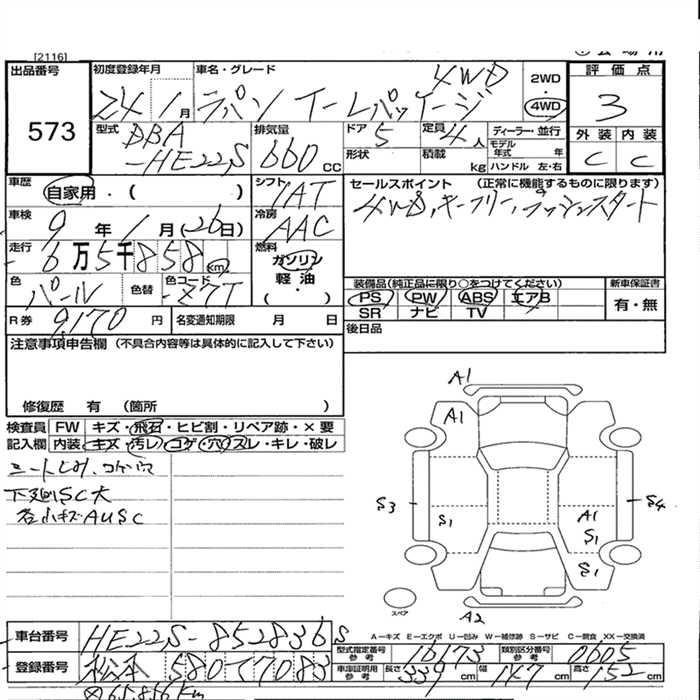 [2116]
出品番号
573
初度登録年月
24年1月
車名・グレード
ラパン イーLパッケージ 4WD
2WD
・
4WD
評価点
3
外装 内装
C C
型式
DBA
-HE22S
排気量
660 CC
ドア
5
形状
定員
4人
積載
kg
ディーラー・並行
モデル年式 年
ハンドル 左・右
車歴
自家用・( )
シフト
1AT
セールスポイント (正常に機能するものに限ります)
4WD、キーフリー、プッシュスタート
車検
9年1月(26日)
冷房
AAC
走行
6万5千858km
燃料
ガソリン
軽油
( ・ )
色
パール
色替
色コード
Z7T
装備品(純正品に限り○をつけてください)
PS PW ABS エアB
SR ナビ TV
新車保証書
有・無
R券
9,170円
名変通知期限 月 日
後日品
注意事項申告欄 (不具合内容等は具体的に記入して下さい)
修復歴 有 (箇所 )
検査員 FW キズ・飛石・ヒビ割・リペア跡・×要
記入欄 内装 キズ・汚レ・コゲ・穴・スレ・キレ・破レ
シートしみ、コゲ穴
下廻SC大
各小キズAUSC
A1
A1
S3
S1
A1
S1
S4
S1
スペア
A2
A－キズ E－エクボ U－凹み W－補修跡 S－サビ C－腐食 XX－交換済
車台番号 HE22S-852836 S
型式指定番号参考 16173
類別区分番号参考 0605
登録番号 松本 580 て 7083
車庫証明用参考 長さ 339cm 幅 147cm 高さ 152cm
65,856 Km